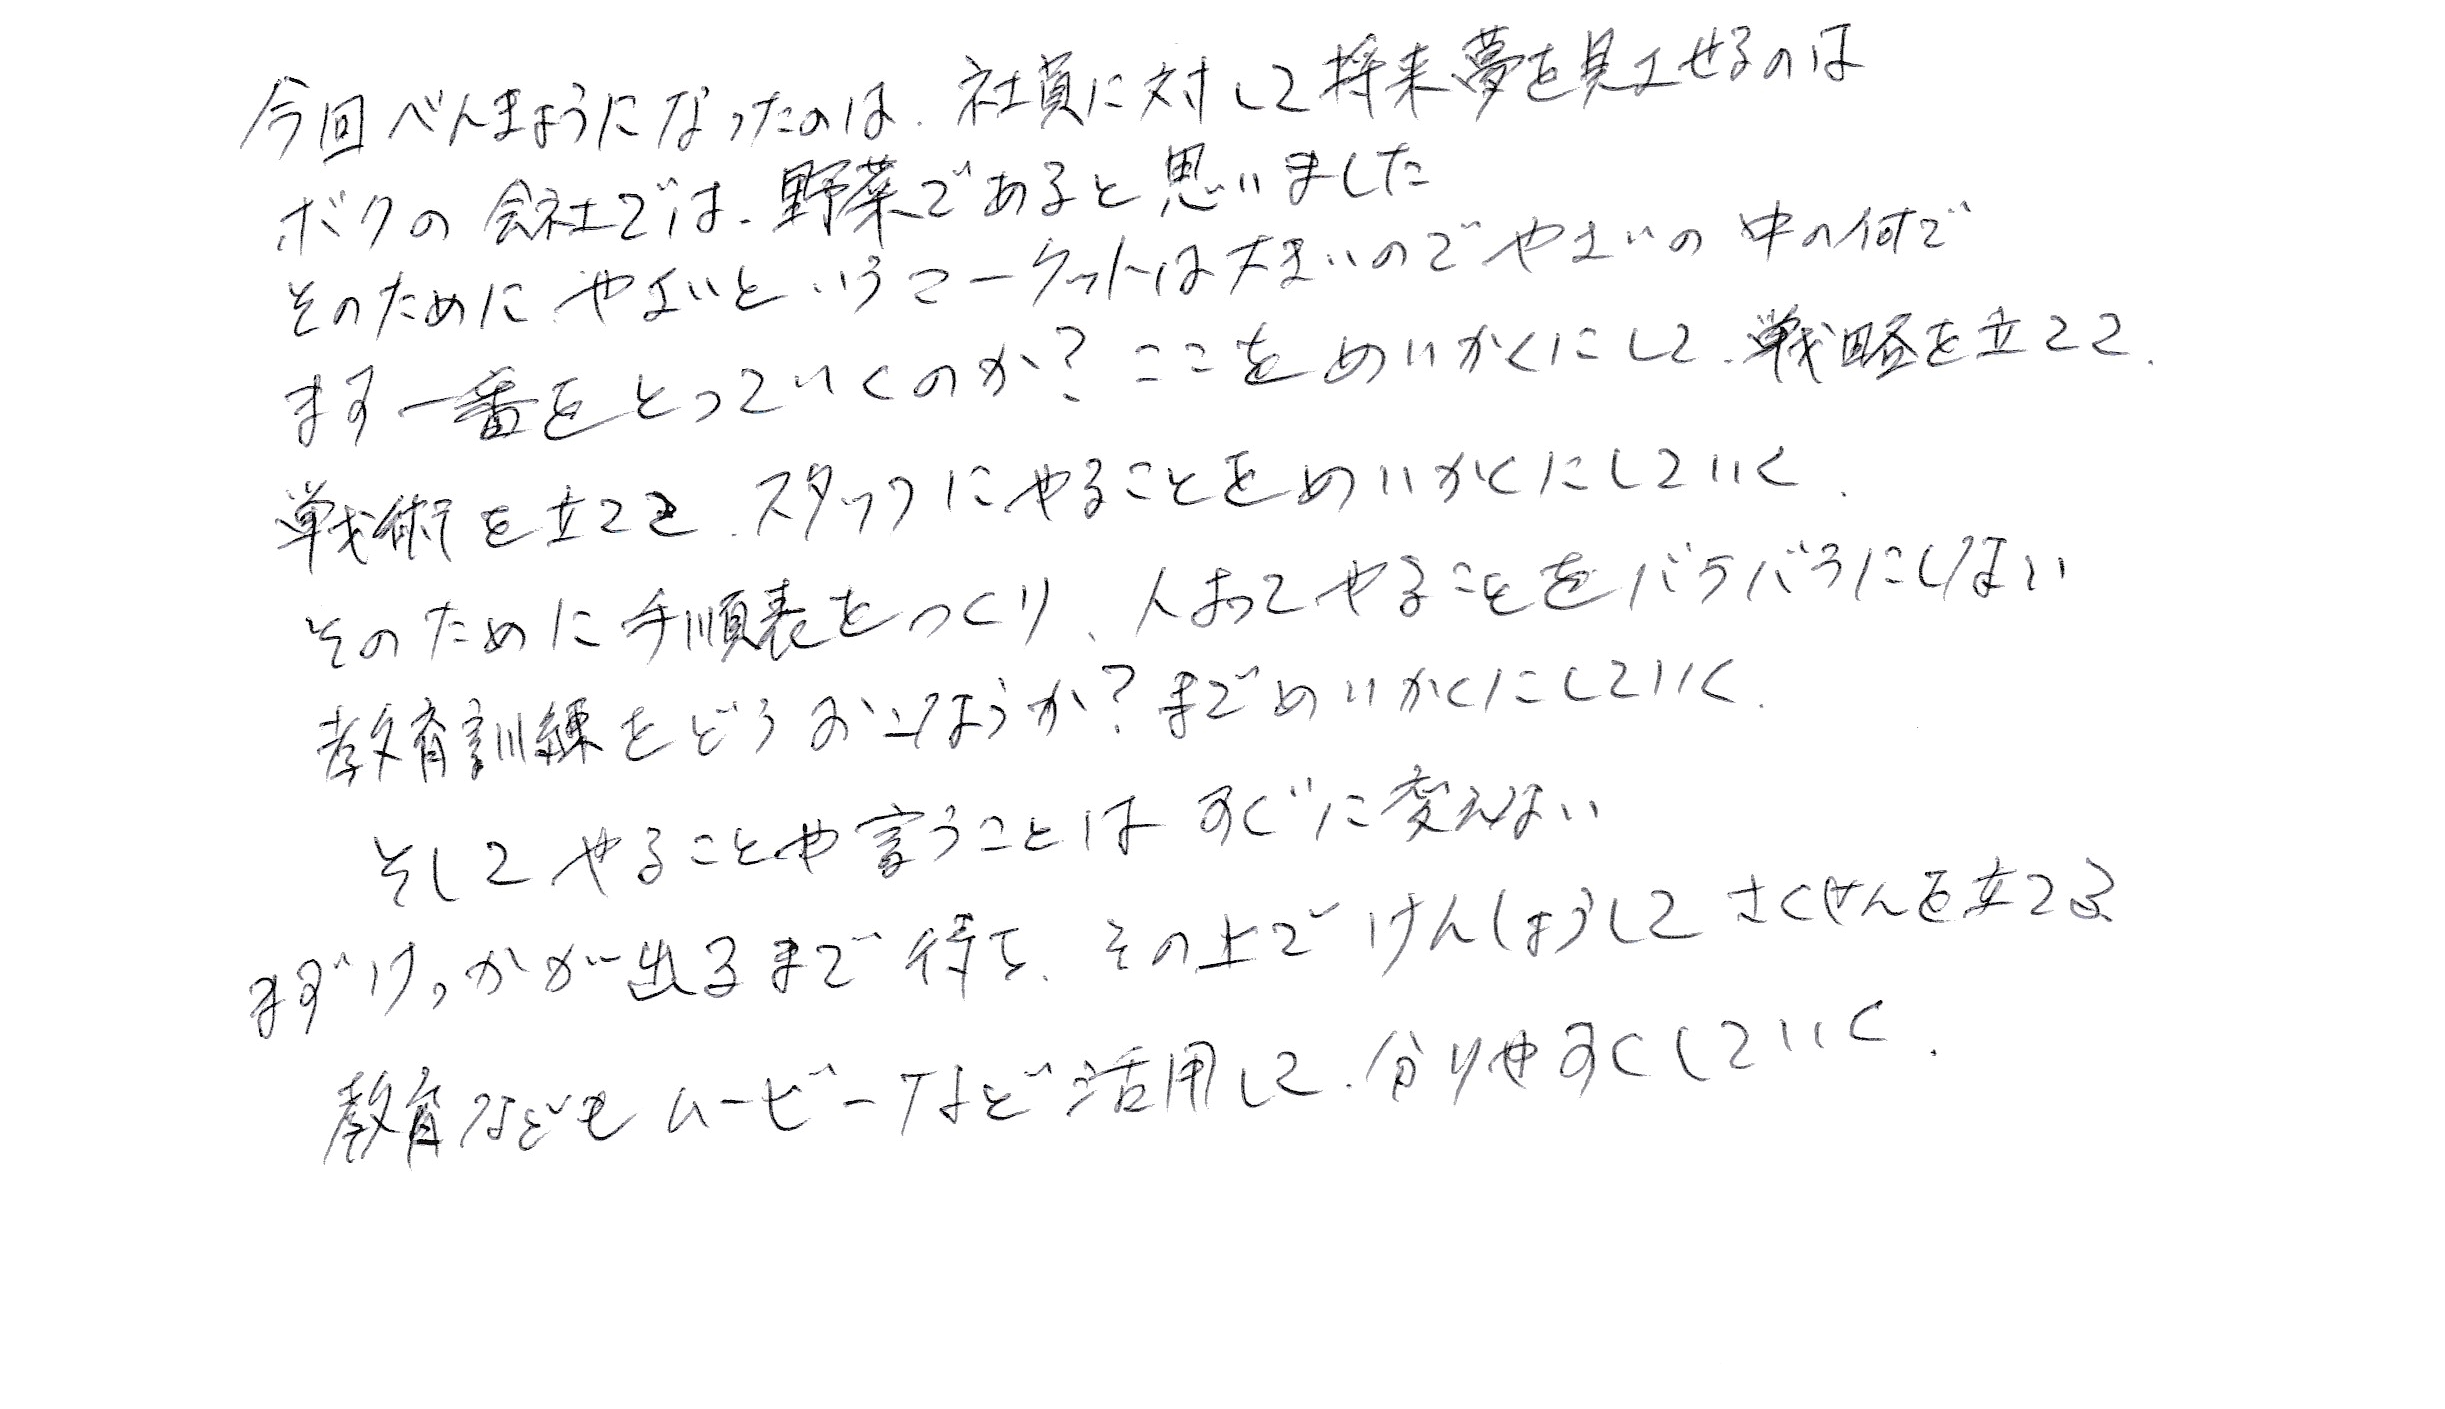 今回べんきょうになったのは、社員に対して将来夢を見させるのは
ボクの会社では、野菜であると思いました
そのために やさいというマーケットは大きいのでやさいの中の何で
まず一番をとっていくのか？ここをめいかくにして、戦略を立てて、
戦術を立てて、スタッフにやることをめいかくにしていく。
そのために手順表をつくり、人よってやることをバラバラにしない
教育訓練をどうおこなうか？までめいかくにしていく。
そしてやることや言うことはすぐに変えない
まずけっかが出るまで待ち、その上でけんしょうしてさくせんを立てる
教育などもムービーなど活用して、分りやすくしていく。